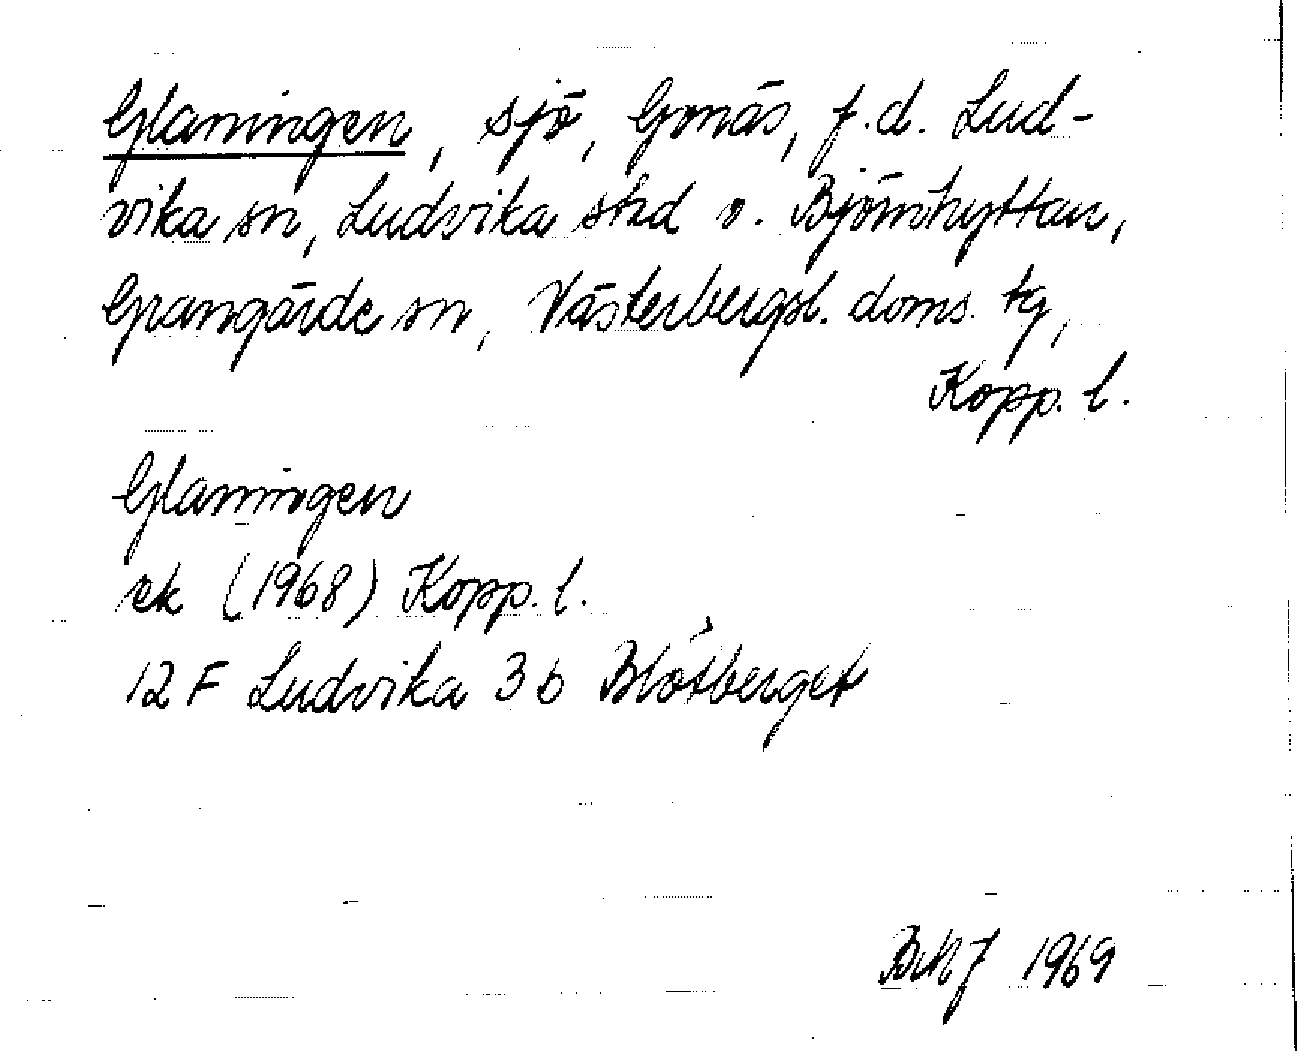 Glaningen, sjö, Gonäs, f.d. Lud-
vika sn, Ludvika stad o. Björnhyttan,
Grangärde sn, Västerbergsl. doms. tg,
Kopp. l.
Glaningen
ek (1968) Kopp. l.
12 F Ludvika 3 b Blötberget
BMJ 1969